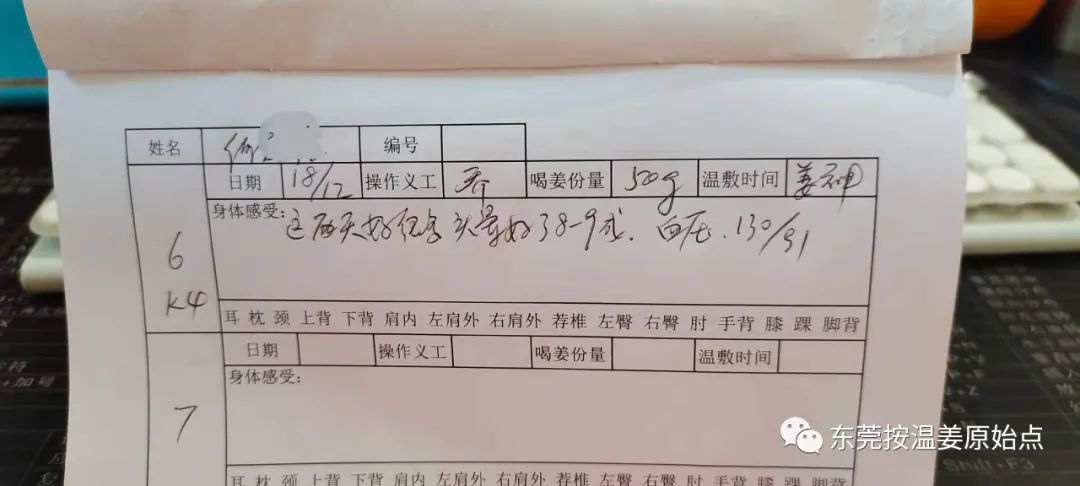 姓名 何 编号
日期 18/12 操作义工 乔 喝姜份量 500g 温敷时间 姜神
6
K4
身体感受: 这两天好很多 头晕好了8-9成. 血压. 130/91
耳 枕 颈 上背 下背 肩内 左肩外 右肩外 荐椎 左臀 右臀 肘 手背 膝 踝 脚背
日期 操作义工 喝姜份量 温敷时间
7
身体感受:
耳 枕 颈 上背 下背 肩内 左肩外 右肩外 荐椎 左臀 右臀 肘 手背 膝 踝 脚背
东莞按温姜原始点
Shift+F3
+加号